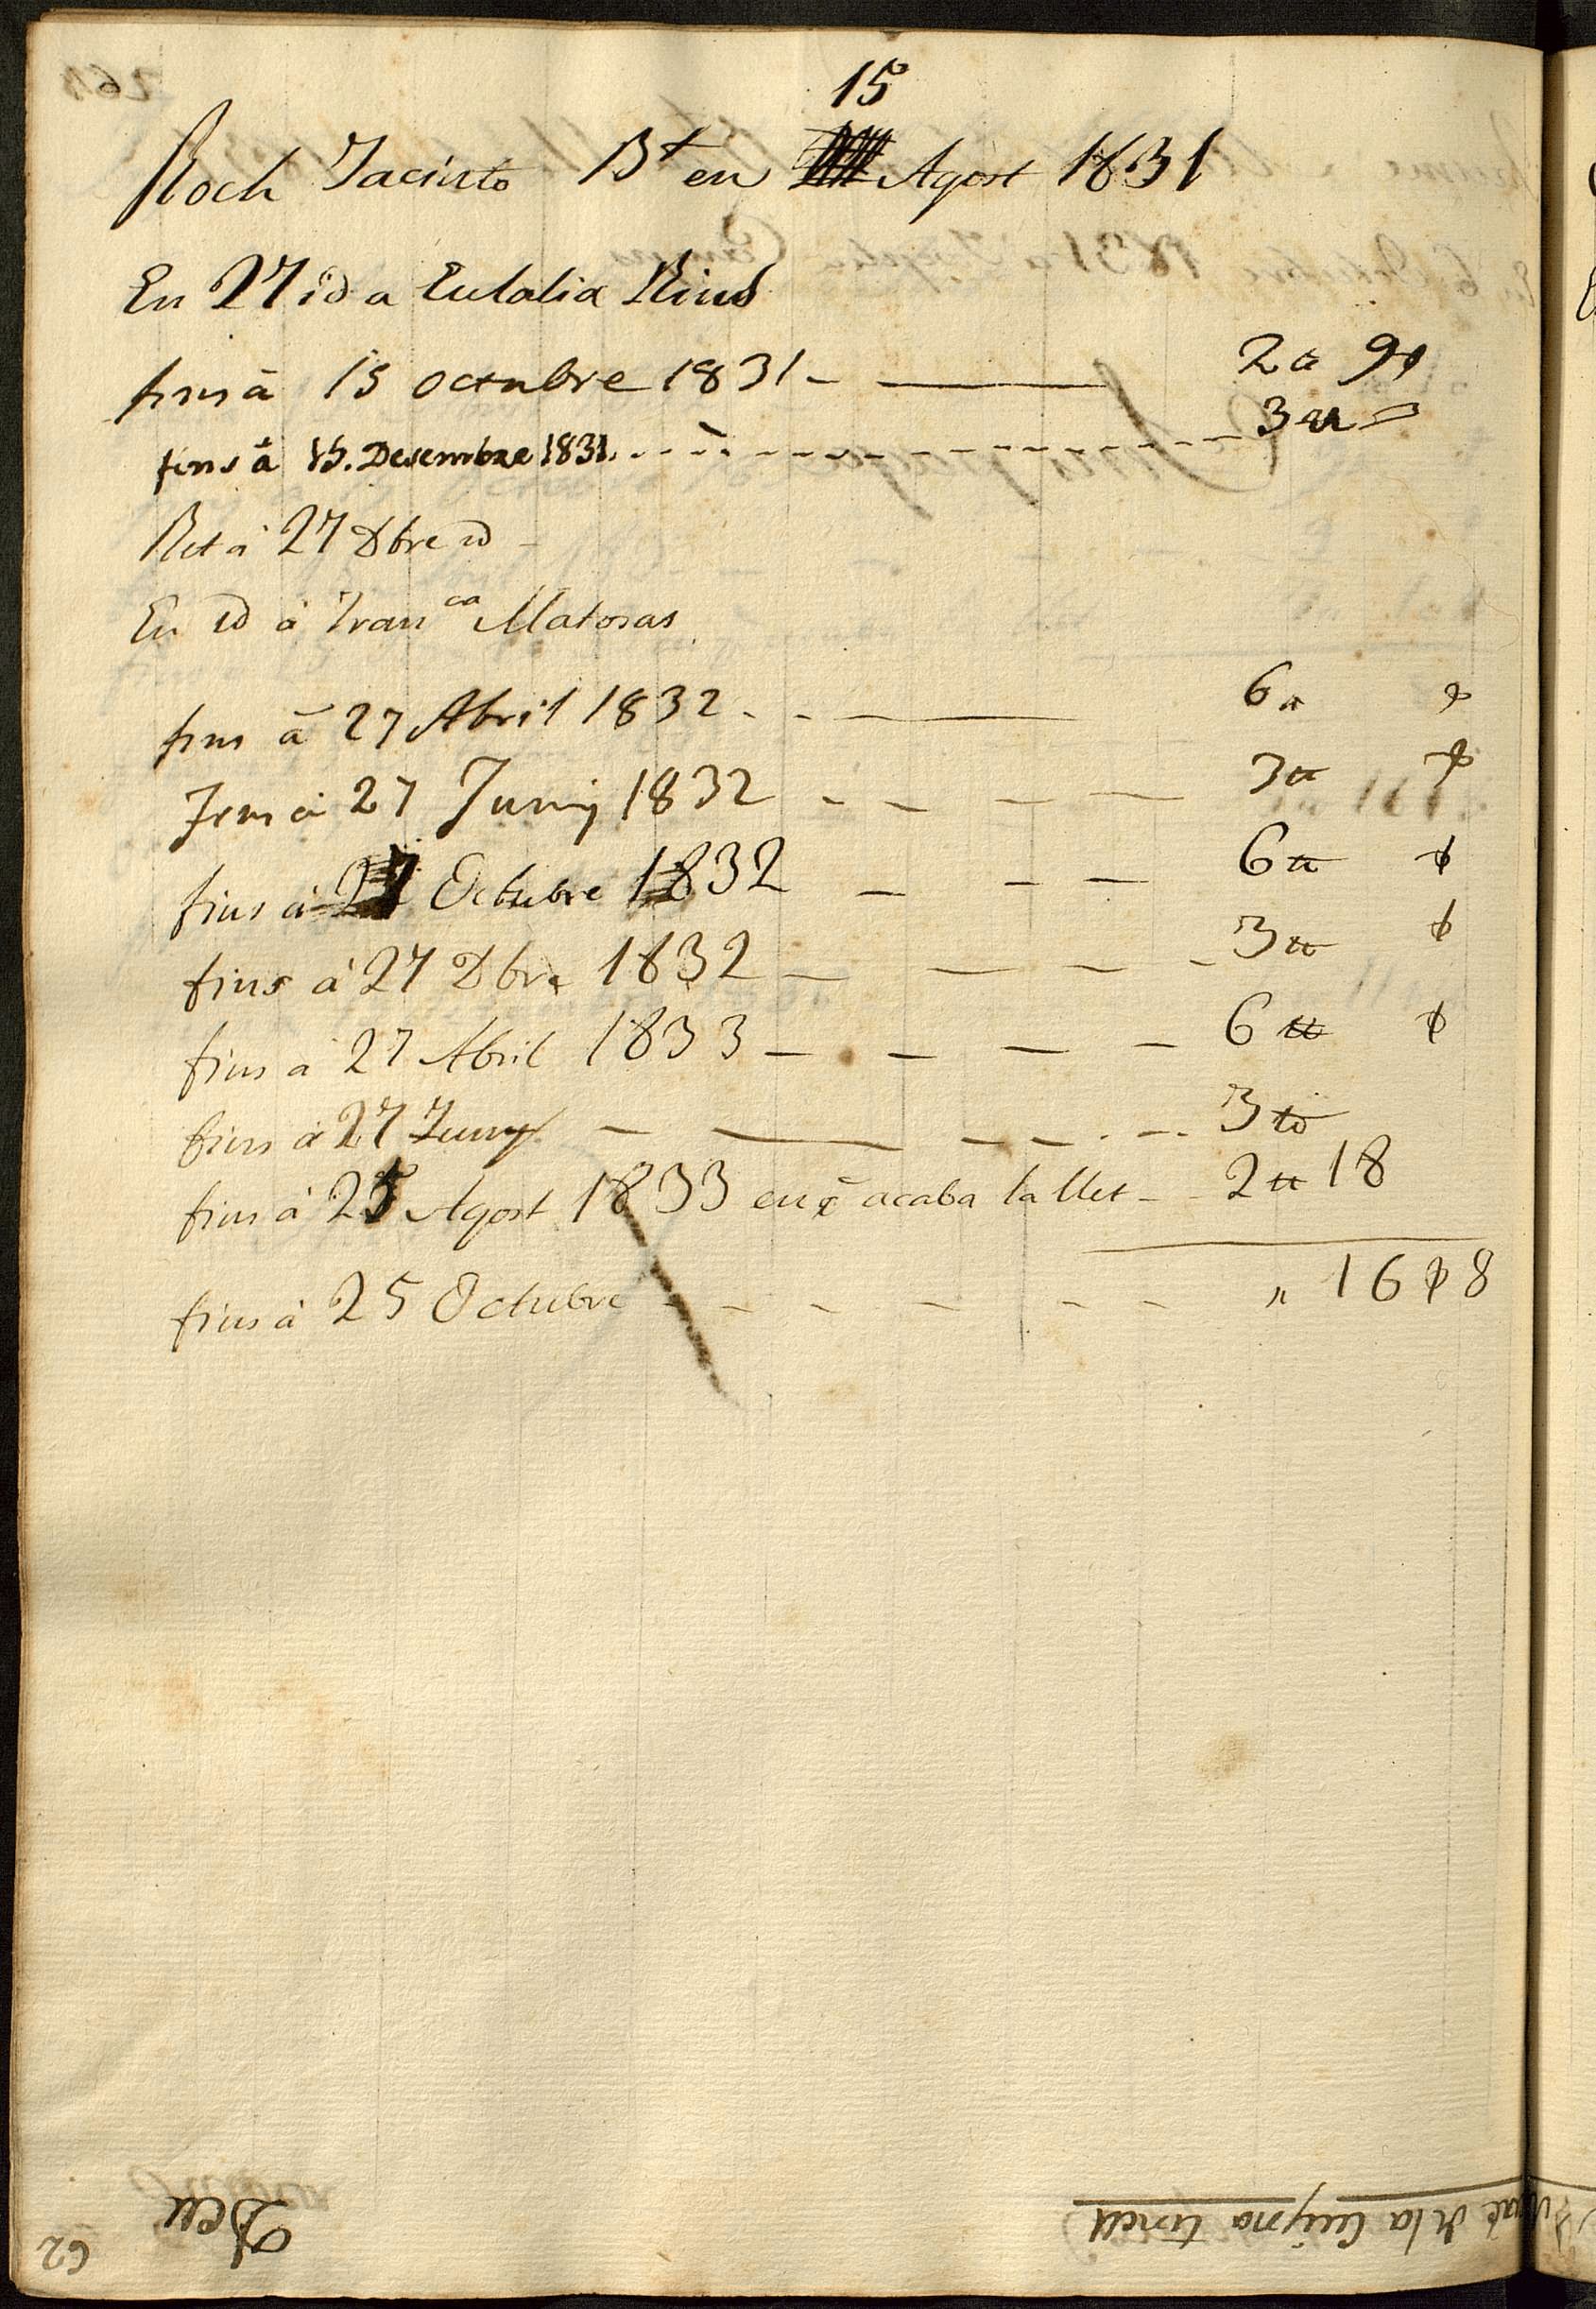 15
Roch Jacinto Bt en Agost 1831
En 27 id a Eulalia Rius
fins à 15 octubre 1831 - — 2 tt 9
fins à 15. Desembre 1831. - - - 3 tt
Ret à 27 Dbre id -
En id à Franca Matosas
fins à 27 Abril 1832 - - — 6 tt
fins à 27 Juny 1832 - - — — 3 tt
fins à 27 Octubre 1832 — - — 6 tt
fins à 27 Dbre 1832 — — — - 3 tt
fins à 27 Abril 1833 — — — — 6 tt
fins à 27 Juny — — - - - - 3 tt
fins à 25 Agost 1833 en q̃ acaba la llet - 2 tt 18
fins à 25 Octubre - - - - - - " 16 8
Deu
62
de la Cuyna